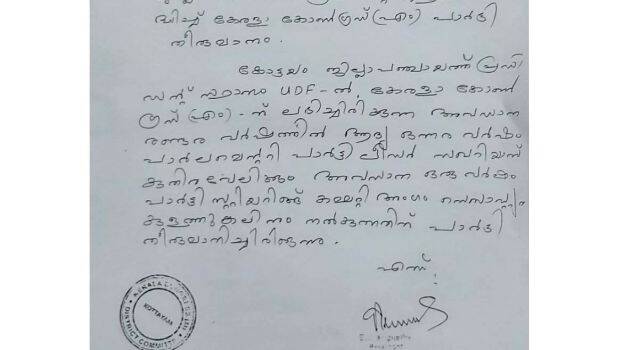 ഡിച്ച് കേരളാ കോൺഗ്രസ് (എം) പാർട്ടി
തീരുമാനം.
കോട്ടയം ജില്ലാ പഞ്ചായത്ത് പ്രസി
ഡന്റ് സ്ഥാനം UDF-ൽ കേരളാ കോൺ
ഗ്രസ് (എം)-ന് ലഭിച്ചിരിക്കുന്ന അവസാന
രണ്ടര വർഷത്തിൽ ആദ്യ ഒന്നര വർഷം
പാർലമെന്ററി പാർട്ടി ലീഡർ സെബാസ്റ്റ്യൻ
കുളത്തുങ്കലിനും അവസാന ഒരു വർഷം
പാർട്ടി സ്റ്റിയറിങ്ങ് കമ്മറ്റി അംഗം
നൽകുന്നതിന് പാർട്ടി
തീരുമാനിച്ചിരിക്കുന്നു.
എന്ന്
DISTRICT COMMITTEE
KOTTAYAM